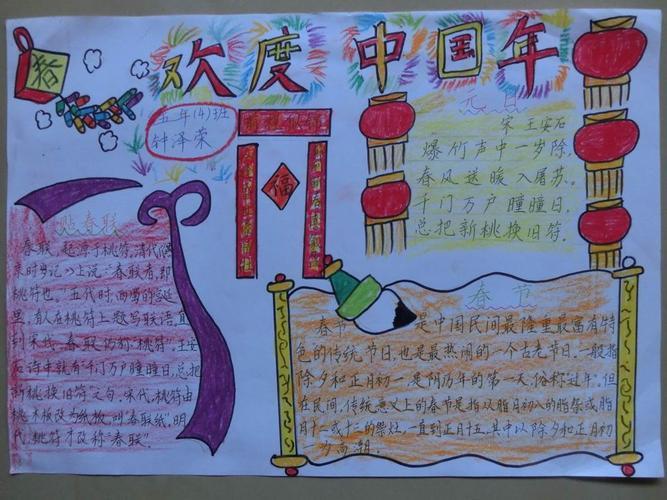 欢度中国年
春
五年(4)班
钟泽荣
福
元日
宋 王安石
爆竹声中一岁除,
春风送暖入屠苏。
千门万户瞳瞳日,
总把新桃换旧符.
贴春联
春联,起源于桃符,清代《燕
京时岁记》上说:"春联者,即
桃符也。"五代时,西蜀的
里,有人在桃符上题写联语,直
到宋代,春联仍称"桃符".王安
石诗中就有"千门万户瞳瞳日,总把
新桃换旧符"之句.宋代,桃符由
桃木板改为纸板,叫"春联纸".明
代,桃符才改称"春联".
春节
春节 是中国民间最隆重最富有特
色的传统节日,也是最热闹的一个古老节日。一般指
除夕和正月初一,是阴历年的第一天,俗称过年".但
在民间,传统意义上的春节是指从腊月初八的腊祭或腊
月廿二或廿三的祭灶,一直到正月十五,其中以除夕和正月初
一为高潮.